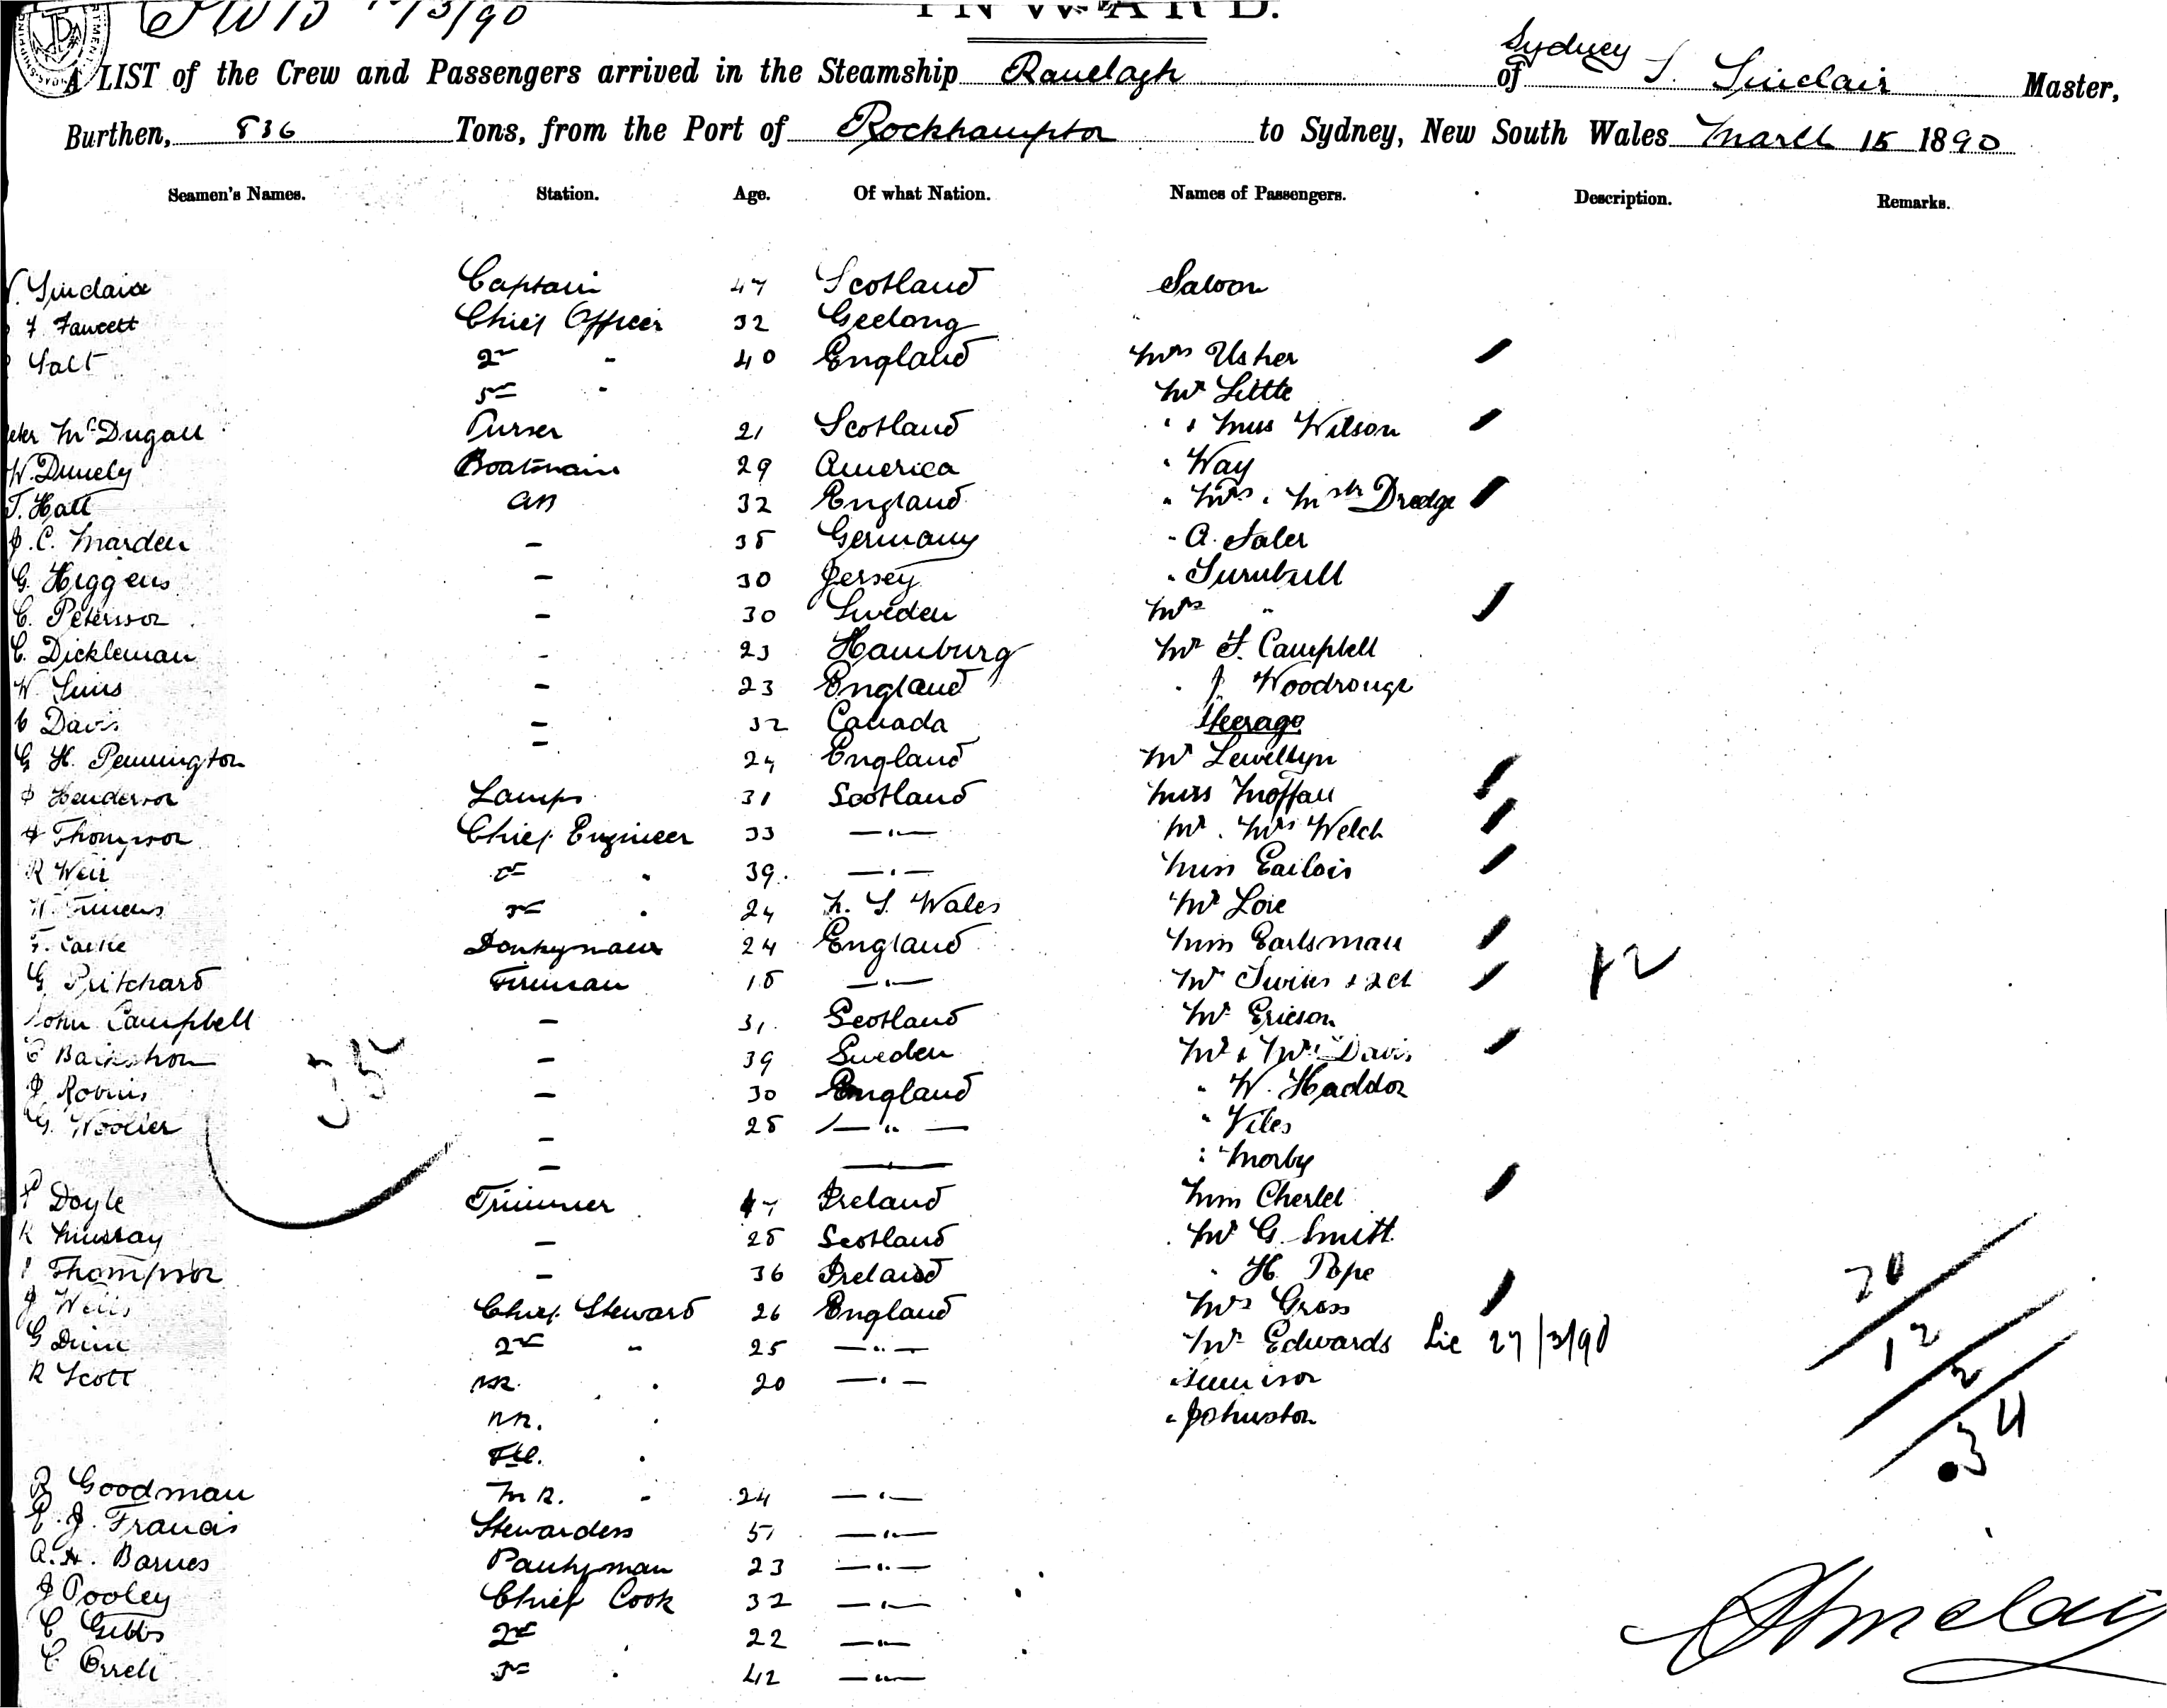 13/3/90
INWARD.
A LIST of the Crew and Passengers arrived in the Steamship Ranelagh of Sydney S. Sinclair Master,
Burthen, 836 Tons, from the Port of Rockhampton to Sydney, New South Wales March 15 1890
Seamen's Names. Station. Age. Of what Nation. Names of Passengers. Description. Remarks.
Sinclair Captain 47 Scotland Saloon
F Fawcett Chief Officer 32 Geelong
Salt 2nd " 40 England Mrs Usher
3rd " Mr Little
McDugall Purser 21 Scotland " & Miss Wilson
W. Boatswain 29 America " Way
T. Hall AB 32 England " Mrs & Mstr Dredge
J. C. Marden - 35 Germany - A. Saler
G. Higgens - 30 Jersey " Turnbull
C. Peterson - 30 Sweden Mrs "
C. Dickleman - 23 Hamburg Mr F. Campbell
W. Sims - 23 England " J. Woodrouge
C Davis - 32 Canada Steerage
G H. Pennington - 24 England Mr Lewellyn
Henderson Lamps 31 Scotland Miss Moffatt
Thompson Chief Engineer 33 —"— Mr & Mrs Welch
R Weir 2nd " 39 —"— Miss
3rd " 24 N. S. Wales Mr
F. Donkeyman 24 England Miss Earlsman
G Pritchard Fireman 18 —"— Mr + 2 ch 12
John Campbell - 31 Scotland Mr Ericson
C - 39 Sweden Mr & Mrs Davis
J Robins - 30 England " W. Haddon
35
G. - 25 —"— " Viles
- — " Morby
P Doyle Trimmer 47 Ireland Miss
R Murray - 25 Scotland Mr G. Smith
Thompson - 36 Ireland " H. Pope
J Wells Chief Steward 26 England Mrs Gross
G Dunn 2nd " 25 —"— Mr Edwards Lie 27/3/90
R Scott " 20 —"—
" " Johnston
F.C. "
20
12
2
34
R Goodman M R. " 24 —"—
E. J. Francis Stewardess 51 —"—
A. H. Barnes Pantryman 23 —"—
J Pooley Chief Cook 32 —"—
C Gibbs 2nd " 22 —"—
C Orrell 3rd " 42 —"—
Sinclair